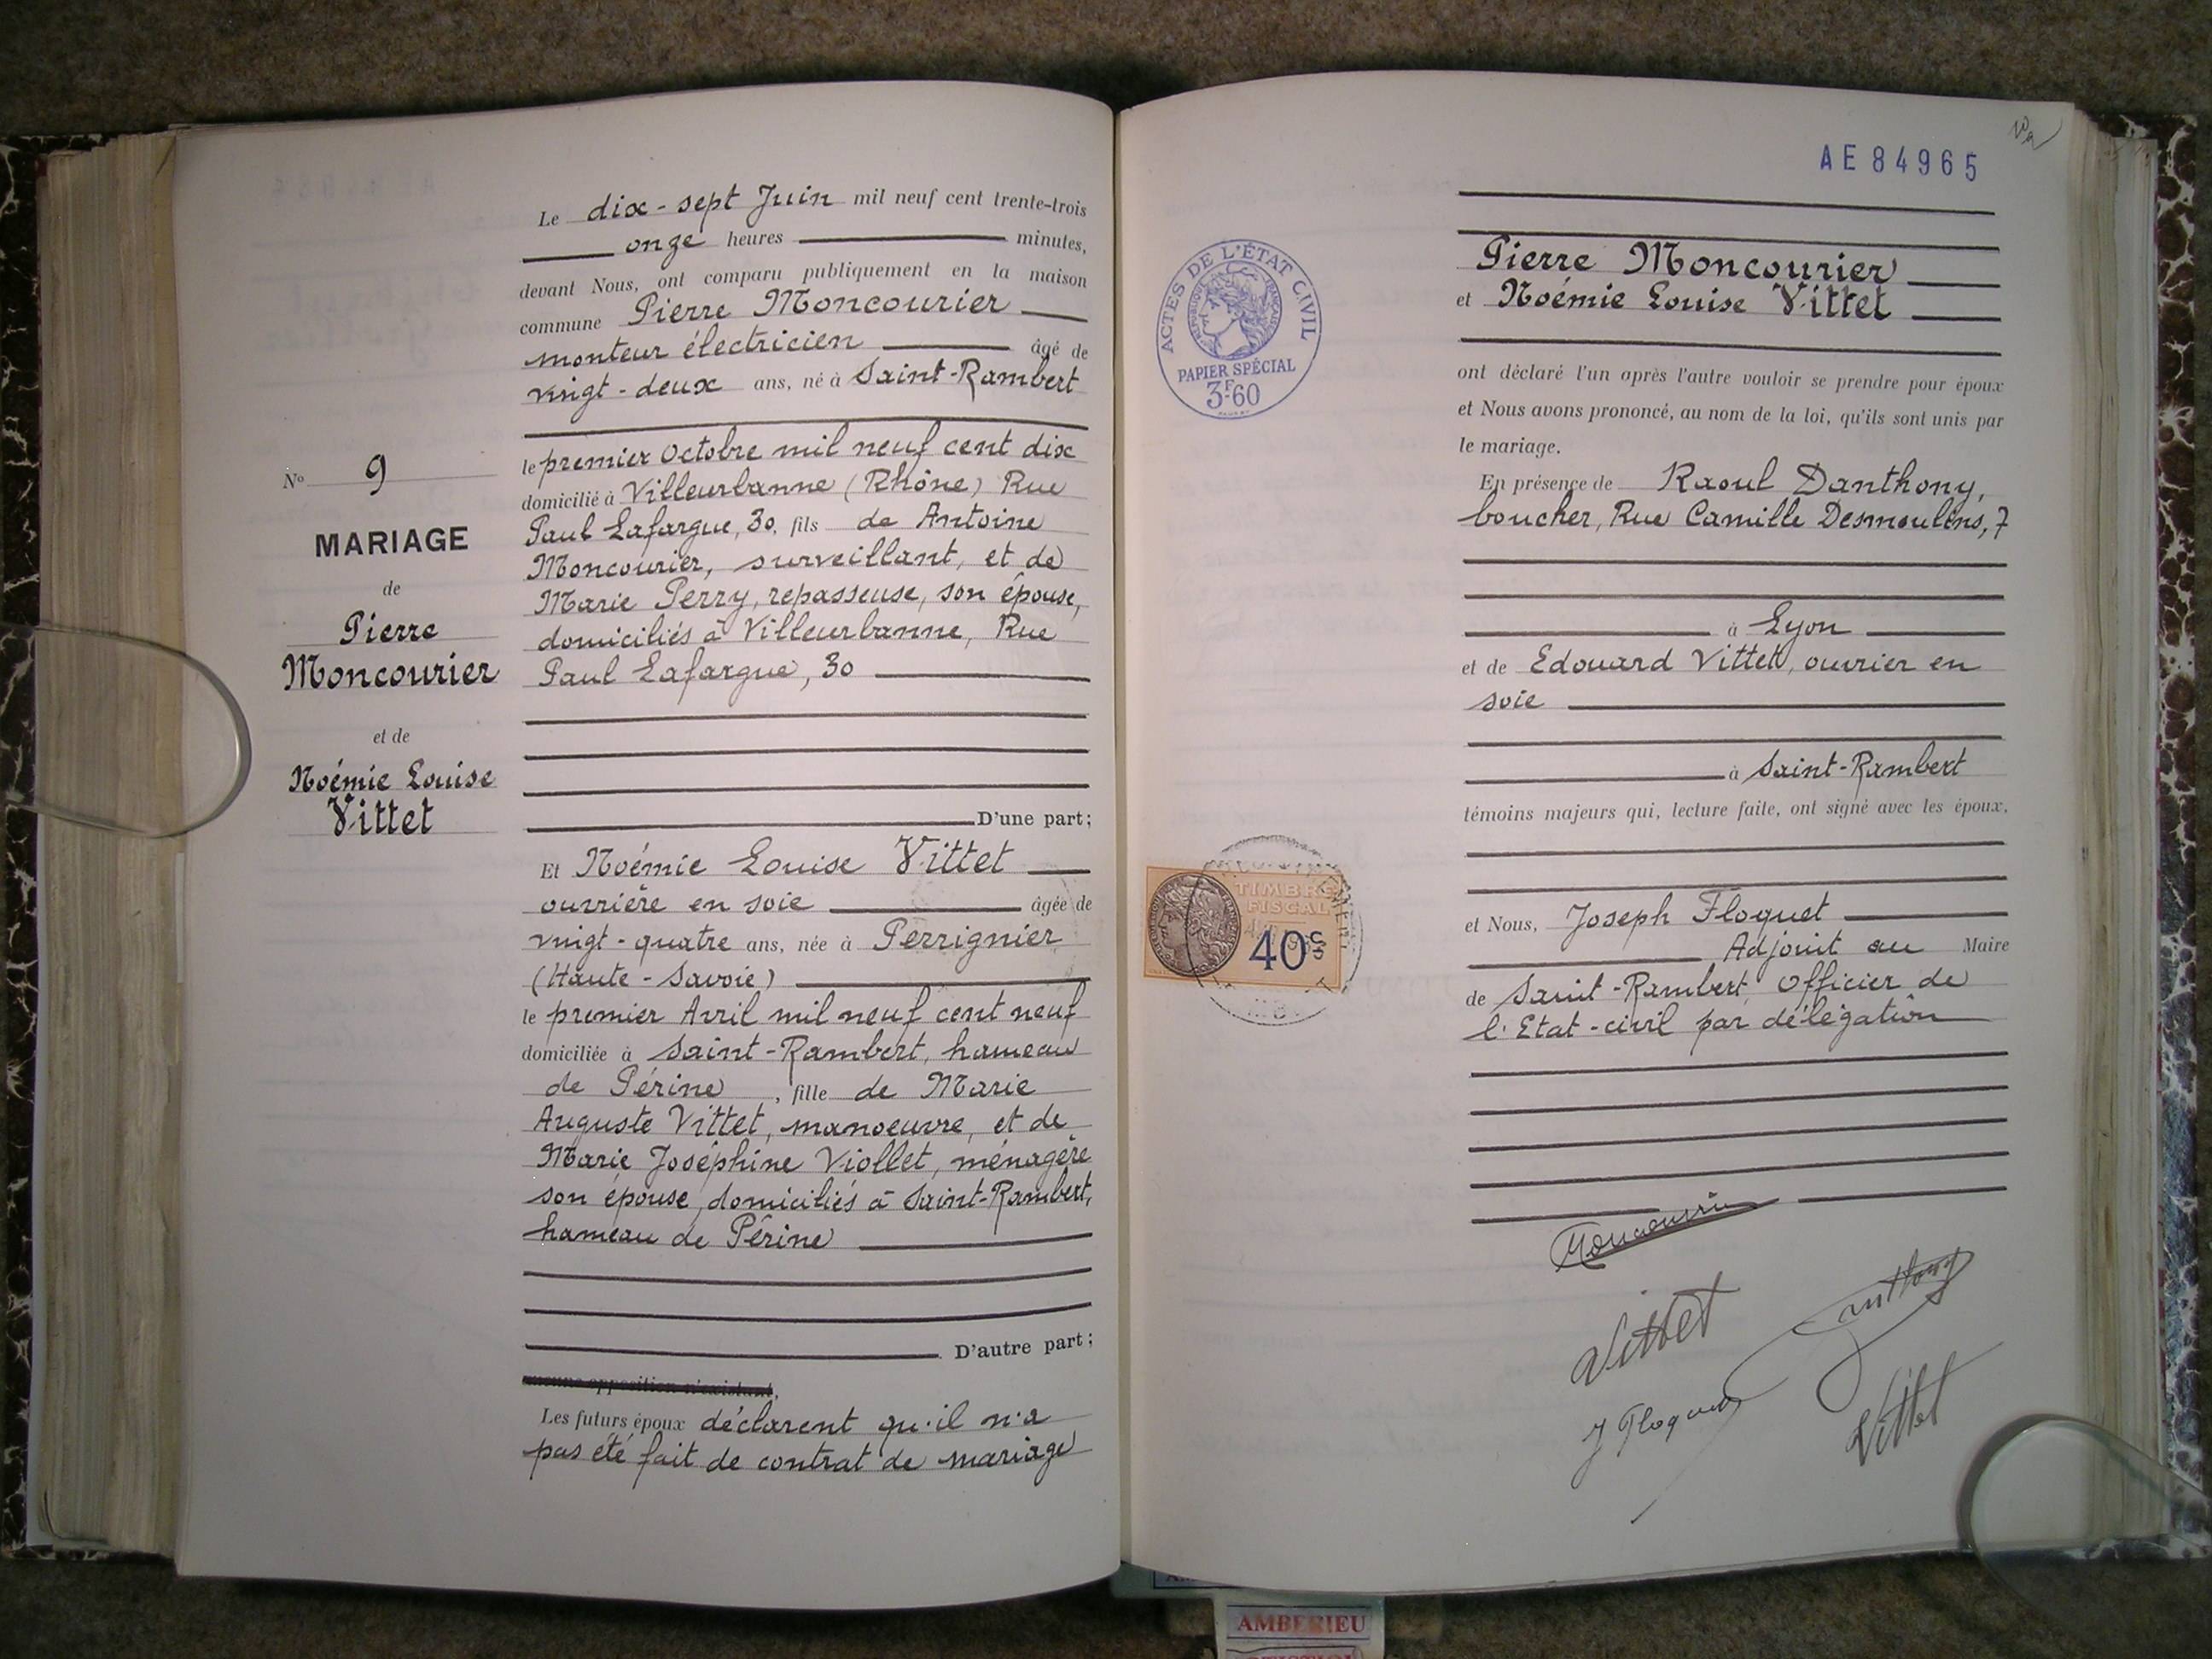 Le dix-sept Juin mil neuf cent trente-trois
onze heures minutes,
devant Nous, ont comparu publiquement en la maison
commune Pierre Moncourier
monteur électricien âgé de
vingt-deux ans, né à Saint-Rambert
le premier Octobre mil neuf cent dix
domicilié à Villeurbanne (Rhône) Rue
Paul Lafargue, 30, fils de Antoine
Moncourier, surveillant, et de
Marie Perry, repasseuse, son épouse,
domiciliés à Villeurbanne, Rue
Paul Lafargue, 30
D'une part;
Et Noémie Louise Vittet
ouvrière en soie âgée de
vingt-quatre ans, née à Perrignier
(Haute-Savoie)
le premier Avril mil neuf cent neuf
domiciliée à Saint-Rambert, hameau
de Périne, fille de Marie
Auguste Vittet, manoeuvre, et de
Marie Joséphine Viollet, ménagère
son épouse, domiciliés à Saint-Rambert,
hameau de Périne
D'autre part;
aucune opposition n'existant,
Les futurs époux déclarent qu'il n'a
pas été fait de contrat de mariage
No 9
MARIAGE
de
Pierre
Moncourier
et de
Noémie Louise
Vittet
AE 84965
ACTES DE L'ÉTAT CIVIL
RÉPUBLIQUE FRANÇAISE
PAPIER SPÉCIAL
3F.60
Pierre Moncourier
et Noémie Louise Vittet
ont déclaré l'un après l'autre vouloir se prendre pour époux
et Nous avons prononcé, au nom de la loi, qu'ils sont unis par
le mariage.
En présence de Raoul Danthony,
boucher, Rue Camille Desmoulins, 7
à Lyon
et de Edouard Vittet, ouvrier en
soie
à Saint-Rambert
témoins majeurs qui, lecture faite, ont signé avec les époux,
TIMBRE
FISCAL
40c
et Nous, Joseph Floquet
Adjoint au Maire
de Saint-Rambert, Officier de
l'Etat-civil par délégation
Moncourier
Vittet
Danthony
J Floquet
Vittet
AMBERIEU